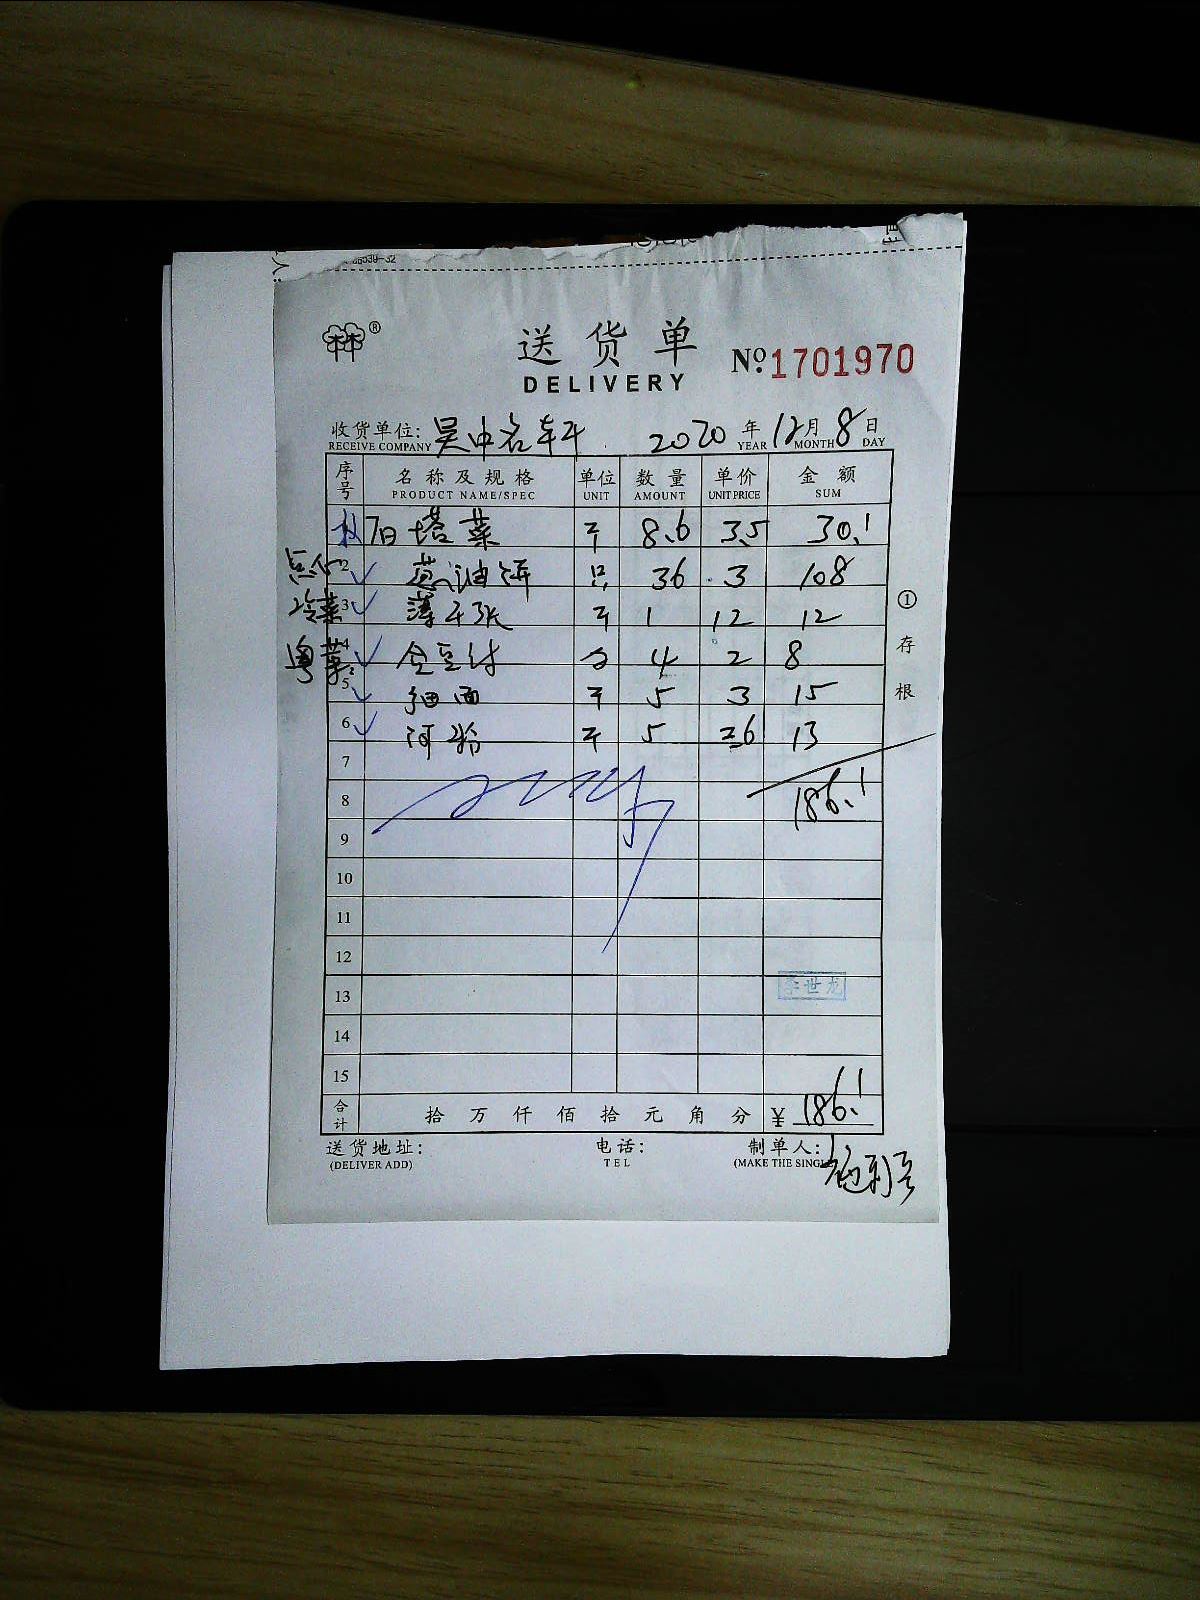 26539-32
林®
送货单
DELIVERY
№ 1701970
收货单位: 吴中名轩 2020 年 12 月 8 日
RECEIVE COMPANY YEAR MONTH DAY
序号 名称及规格 单位 数量 单价 金额
PRODUCT NAME/SPEC UNIT AMOUNT UNIT PRICE SUM
7日 塔菜 斤 8.6 3.5 30.1
点心 2 葱油饼 只 36 3 108
冷菜 3 薄千张 斤 1 12 12
粤菜 4 4 2 8
5 细面 斤 5 3 15
6 河粉 斤 5 2.6 13
7
8 186.1
9
10
11
12
13 李世龙
14
15
合计 拾 万 仟 佰 拾 元 角 分 ¥ 186.1
送货地址: 电话: 制单人:
(DELIVER ADD) TEL (MAKE THE SINGL
① 存根